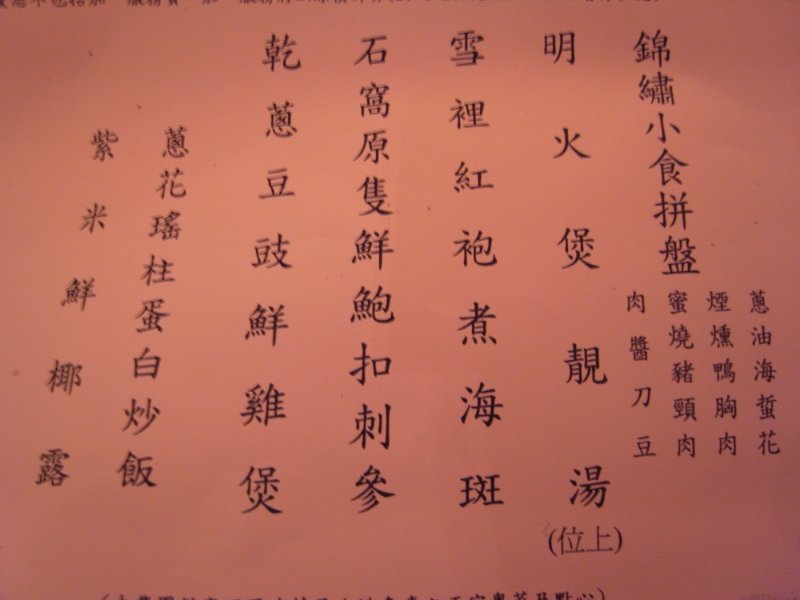 錦繡小食拼盤
蔥油海蜇花
煙燻鴨胸肉
蜜燒豬頸肉
肉醬刀豆
明火煲靚湯
(位上)
雪裡紅袍煮海斑
石窩原隻鮮鮑扣刺參
乾蔥豆豉鮮雞煲
蔥花瑤柱蛋白炒飯
紫米鮮椰露